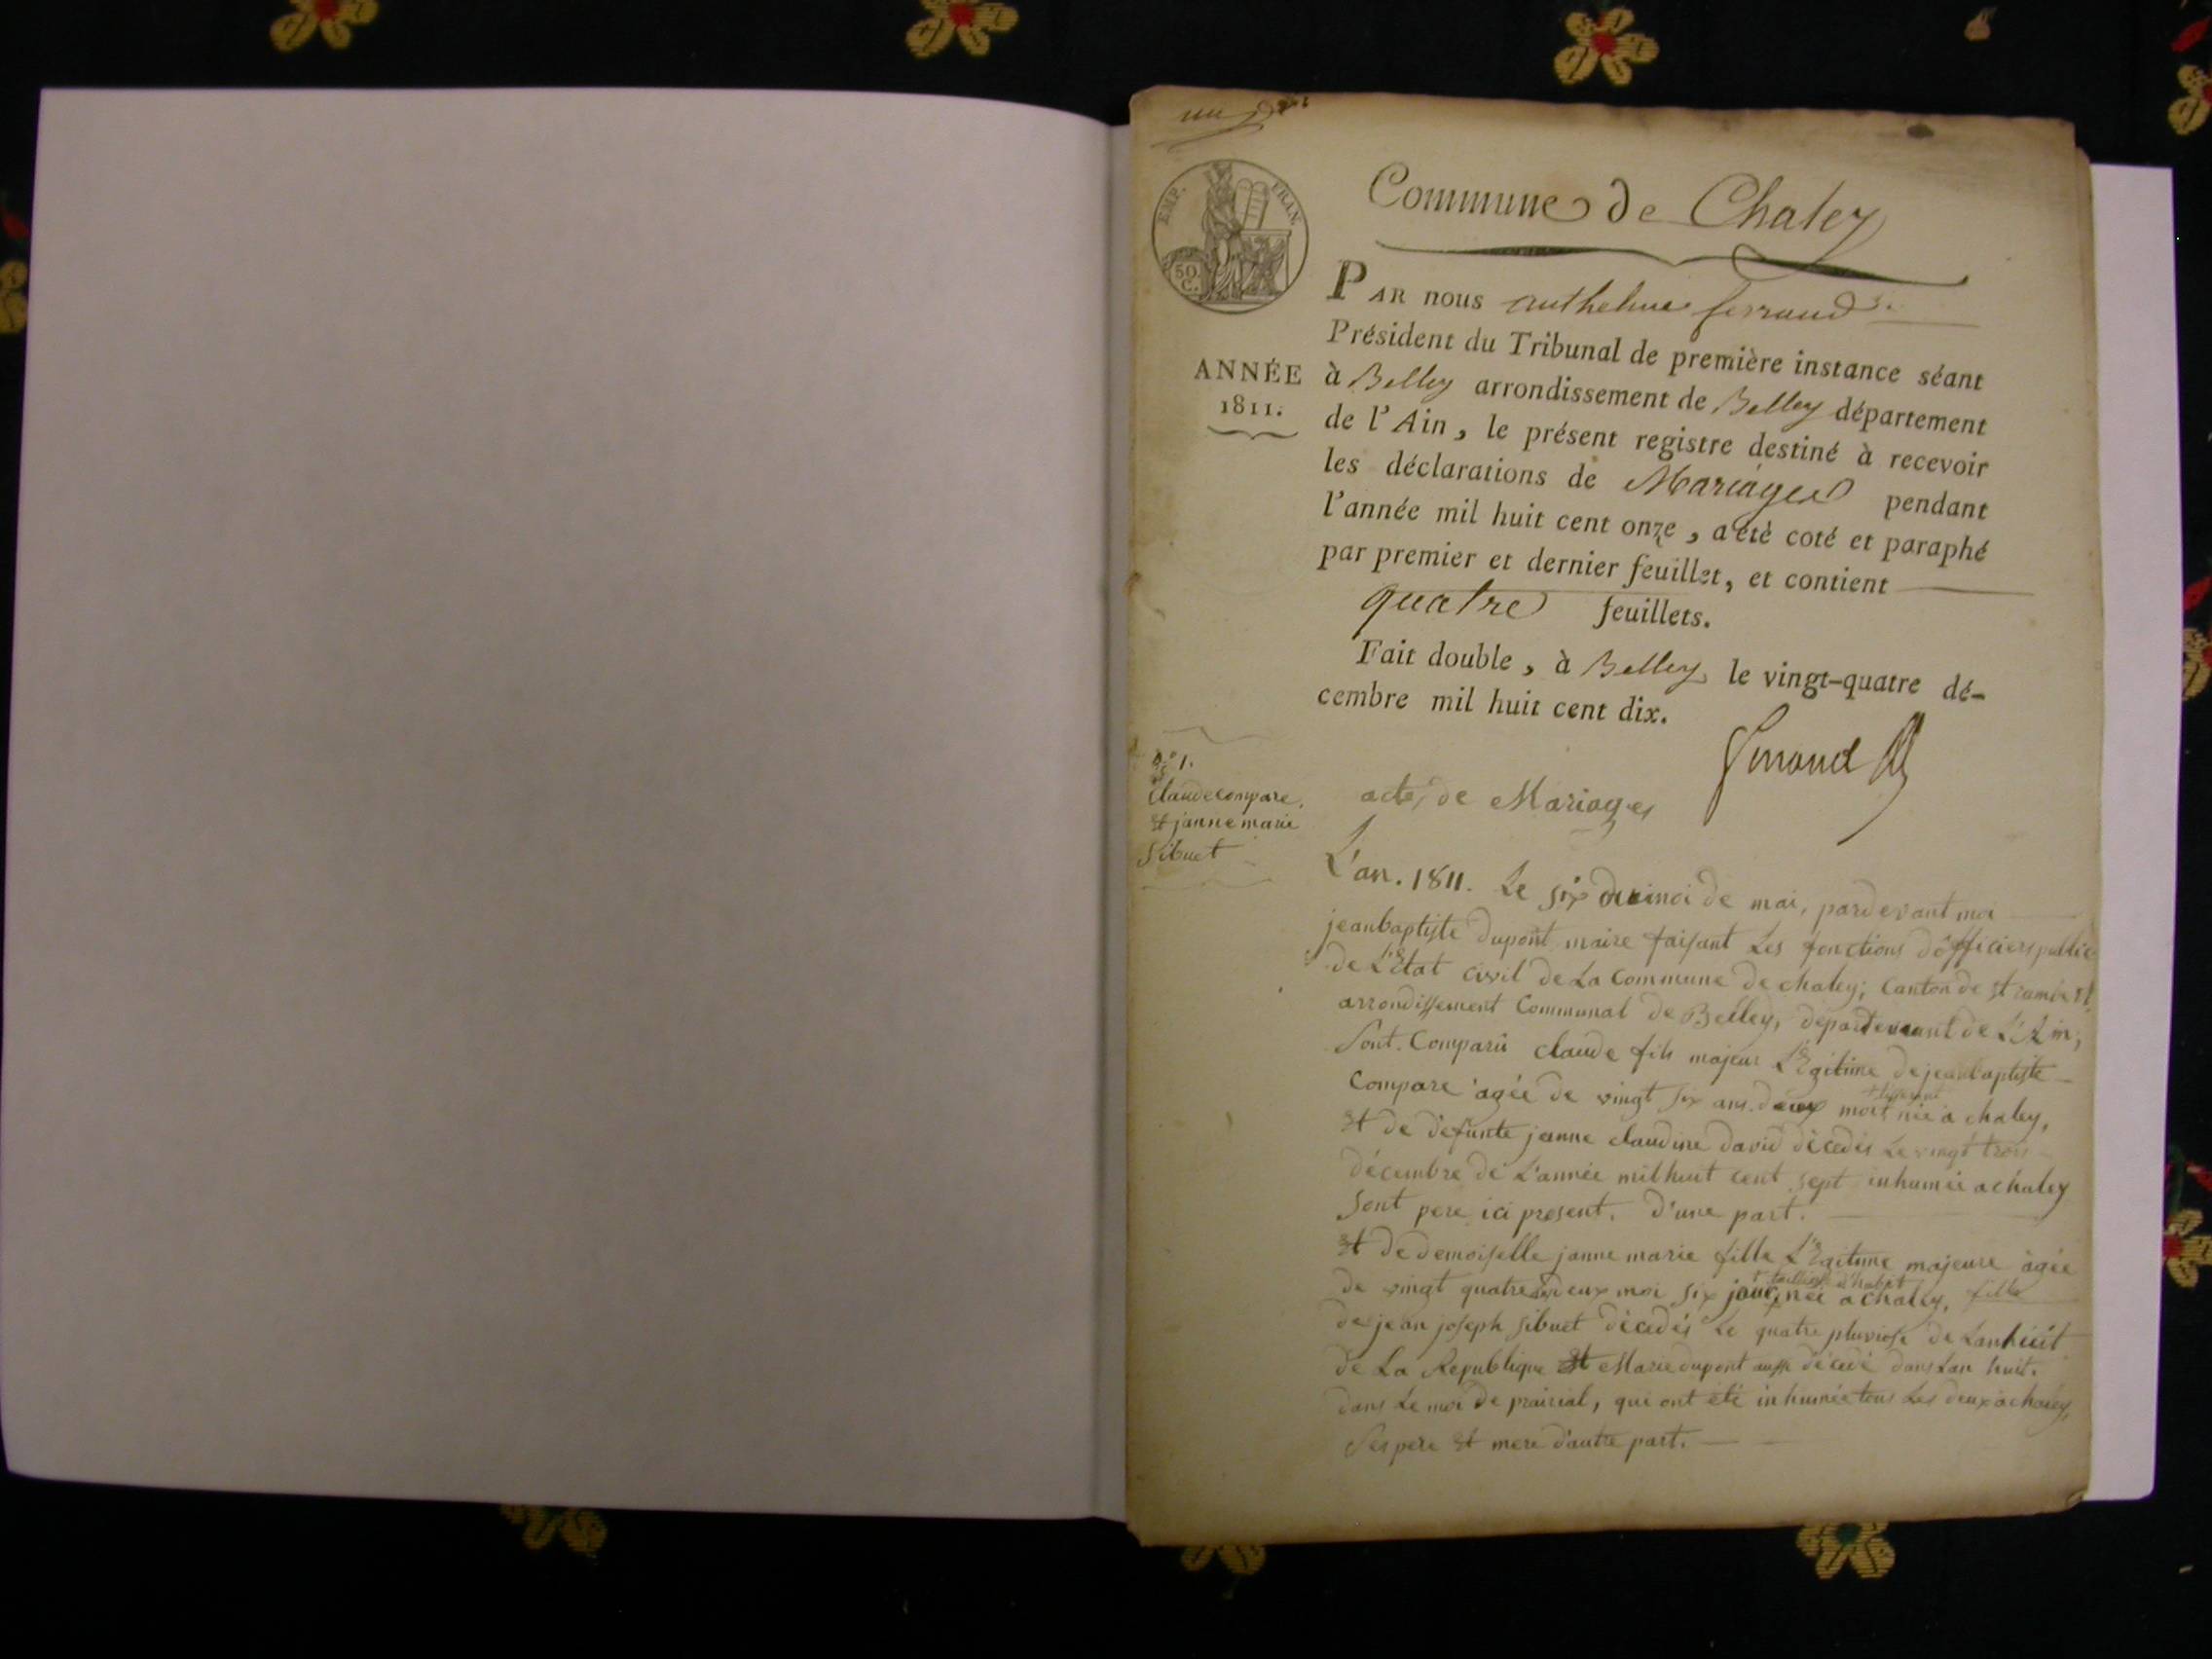 un
EMP. FRAN.
50 C.
Commune de Chaley
PAR nous anthelme ferrand
Président du Tribunal de première instance séant
ANNÉE
1811.
à Belley arrondissement de Belley département
de l'Ain, le présent registre destiné à recevoir
les déclarations de Mariages pendant
l'année mil huit cent onze, a été coté et paraphé
par premier et dernier feuillet, et contient
quatre feuillets.
Fait double, à Belley le vingt-quatre dé-
cembre mil huit cent dix.
ferrand
n.o 1.
Claude compare,
et janne marie
sibuet
acte de Mariages
L'an. 1811. Le six du moi de mai, pardevant moi
jeanbaptiste dupont maire faisant Les fonctions d'officiers public
de L'Etat civil de La Commune de chaley; Canton de st rambert,
arrondissement Communal de Belley, departement de L'Ain;
Sont. Comparù claude fils majeur LEgitime de jeanbaptiste
Compare agée de vingt six ans deux moit née a chaley,
Et de defunte jeanne claudine david décedés Le vingt trois
décembre de L'année mil huit cent sept inhumée a chaley
Sont pere ici present. D'une part.
Et de demoiselle janne marie fille LEgitime majeure àgée
de vingt quatre ans deux moi six jour, née a chaley, fille
+ tailleuse d'habit
de jean joseph sibuet décedés Le quatre pluviose de Lan huit
de La Republique Et Marie dupont aussi décedé dans Lan huit.
dans Le moi de prairial, qui ont été inhumée tous Les deux a chaley,
Ses pere Et mere d'autre part.